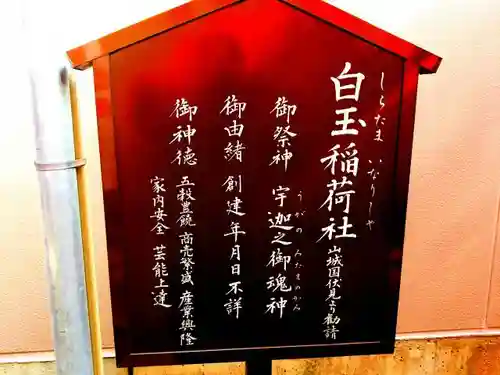 白玉稲荷社 山城国伏見より勧請
しらたま いなりしゃ
御祭神 宇迦之御魂神
うがの みたまのかみ
御由緒 創建年月日不詳
御神徳 五穀豊饒 商売繁盛 産業興隆
家内安全 芸能上達